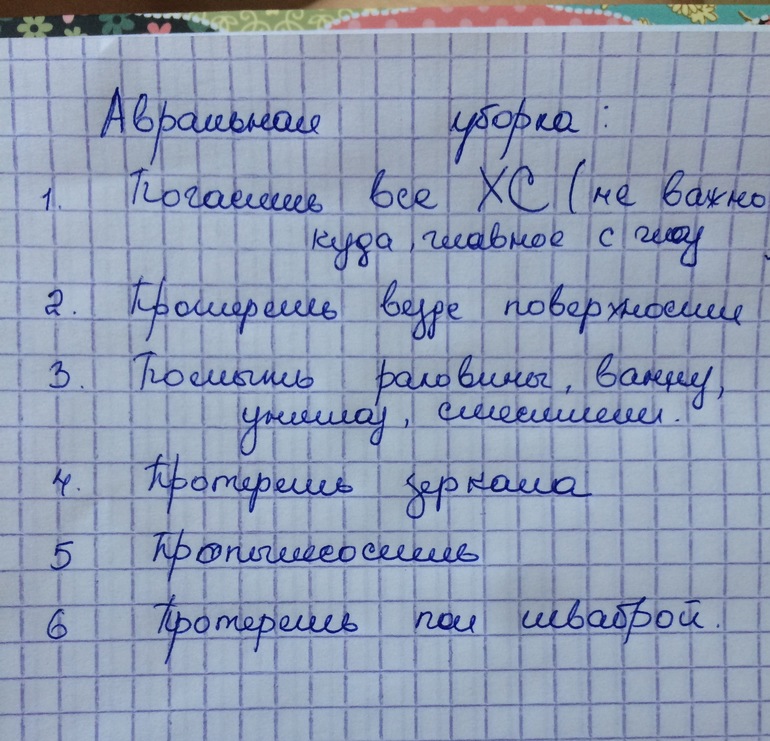 Авральная уборка:
1. все ХС (не важно
куда, главное с глаз
2. Протереть везде поверхности
3. Помыть раковины, ванну,
унитаз, смесители.
4. Протереть зеркала
5 Пропылесосить
6 Протереть пол шваброй.